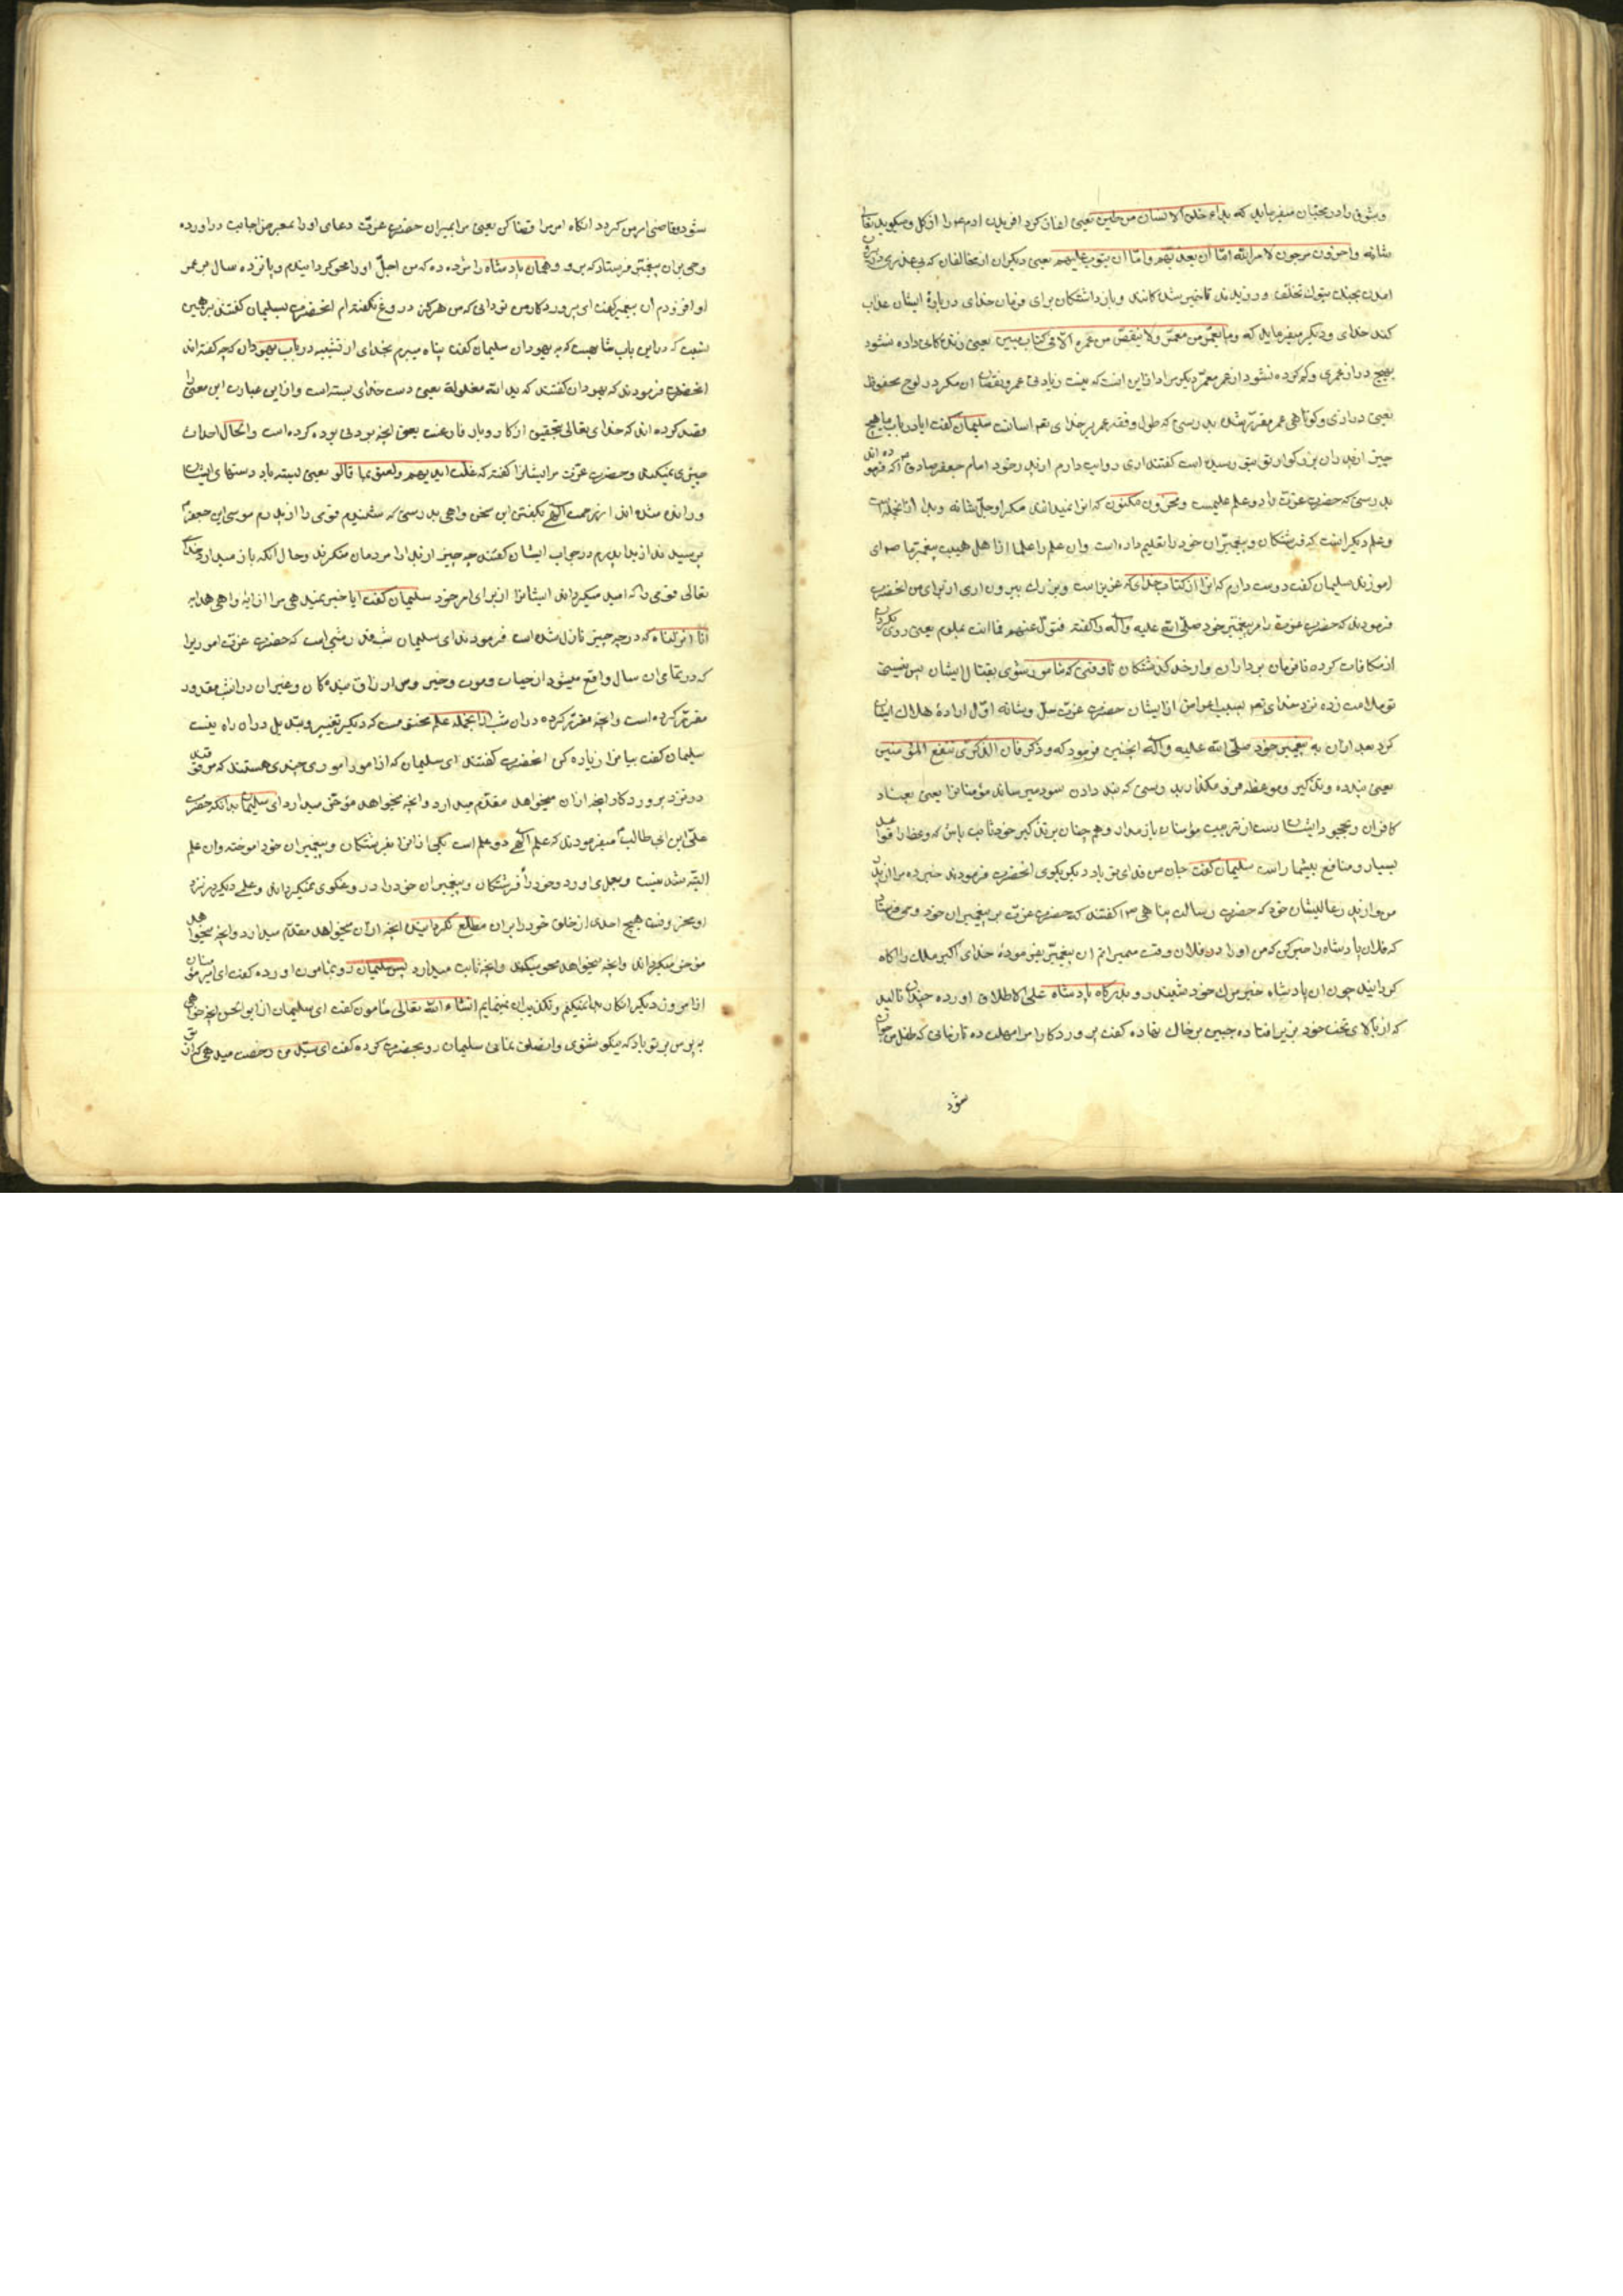 و بثوفی را در مختان میفرماید که بداء خلق الانسان من طین یعنی اغاز کرد افریدن ادم را از کل و میکوید تعالی
شانه و اخرون مرجون لامر الله امّا ان یعذبهم و امّا ان یتوب علیهم یعنی دیکران از مخالفان که بی عذری
امدن بجنك تبوك تخلف ورزیدند تاخیر شدکانند و بازداشتکان برای فرمان خدای دربارهٔ ایشان عذاب
کند خدای و دیکر میفرماید که و ما یعمّر من معمّر ولا ینقص من عمره الّا فی کتاب مبین یعنی زندکانی داده نشود
بهیچ دراز عمری و کم کرده نشود از عمر معمّر دیکر مراد ازاین انست که نیست زیادتی عمر و نقصان ان مکر در لوح محفوظ
یعنی درازی و کوتاهی عمر مقرّر شد بدرستی که طول و فقد عمر بر خدای تعم اسانت سلیمان کفت ایا در باب ما هیچ
چیز از پدران بزرکوار تو بتو رسیده است کفتند اری روایت دارم از پدر خود امام جعفر صادق ع که فرموده اند
بدرستی که حضرت عزت را دو علم علیمست و مخزون مکنون که انرا نمیداند مکر او جلّ شانه و بداء ازانجمله است
و علم دیکر انست که فرشتکان و پیغمبران خود را تعلیم داده است وان علم را علما از اهل بیت پیغمبر ما
اموزند سلیمان کفت دوست دارم که انرا از کتاب خدای که عزیز است و بزرك بیرون اری از برای من انحضرت
فرمودند که حضرت عزت مر پیغمبر خود صلّی الله علیه واله را کفته فتولّ عنهم فما انت بملوم یعنی روی بکردان
از مکافات کرده نافرمان برداران و از حد کذشتکان تا وقتی که مامور شوی بقتال ایشان پس نیستی
تو ملامت زده نزد خدای تعم بسبب اعراض از ایشان حضرت عزت جلّ و شانه اوّل ارادهٔ هلاك ایشان
کرد بعد ازان به پیغمبر خود صلّی الله علیه واله اینچنین فرمود که و ذکّر فان الذکری تنفع المؤمنین
یعنی پند ده و تذکیر و موعظه فرو مکذار بدرستی که پند دادن سود میرساند مؤمنانرا یعنی بعناد
کافران و جحود ایشان دست از تربیت مؤمنان باز مدار و هم چنان بر تذکیر خود ثابت باش که وعظ را فواید
بسیار و منافع بیشمار است سلیمان کفت جان من فدای تو باد دیکر بکوی انحضرت فرمودند خبر ده مرا از پدر
من از پدر عالیشان خود که حضرت رسالت پناهی ص کفتند که حضرت عزت بر پیغمبران خود وحی فرستاد
که فلان پادشاه را خبر کن که من او را در فلان وقت میمیرانم ان پیغمبر بفرمودهٔ خدای اکبر ملك را اکاه
کردانید چون ان پادشاه خبر مرك خود شنید رو بدرکاه پادشاه علی الاطلاق اورده چندان نالید
که از بالای تخت خود بزیر افتاده جبین بر خاك نهاده کفت پروردکارا مرا مهلت ده تا زمانی که طفل من جوان
شود
شود و تقاضی امر من کردد انکاه امر مرا قضا کن یعنی مرا بمیران حضرت عزت دعای او را بمعرض اجابت دراورده
وحی بران پیغمبر فرستاد که برو و همان پادشاه را مژده ده که من اجل او را محو کردانیدم و پانزده سال بر عمر
او افزودم ان پیغمبر کفت ای پروردکار من تو دانی که من هرکز دروغ نکفته ام انحضرت بسلیمان کفتند
نسبت که در این باب مشابهست که به یهودان سلیمان کفت پناه میبرم بخدای از تشبیه در باب یهودان که چه کفته اند
انحضرت فرمودند که یهودان کفتند که ید الله مغلولة یعنی دست خدای بسته است و ازاین عبارت این معنی را
قصد کرده اند که خدای تعالی بتحقیق از کار و بار فارغست یعنی انچه بودنی بوده کرده است والحال احداث
چیزی نمیکند و حضرت عزت مر ایشانرا کفته که غلت ایدیهم و لعنو بما قالو یعنی بسته باد دستهای ایشان
و رانده شده اند از رحمت الهی بکفتن این سخن واهی بدرستی که شنیدم قومی را از پدرم موسی ابن جعفر ع
پرسیدند از بداء پدرم در جواب ایشان کفتند چه چیز از بداء مردمان منکرند و حال انکه باز میدارد خدای
تعالی قومی را که امید میکرداند ایشانرا از برای امر خود سلیمان کفت ایا خبر نمیدهی مرا از
انا انزلناه که در چه چیز نازل شده است فرمودند ای سلیمان شب قدر شبی است که حضرت عزت اموریرا
که در تمامی ان سال واقع میشود از حیات و موت و خیر و شر و ارزاق بندکان و غیر ان در انشب مقدور
مقرر کرده است وانچه مقرر کرده دران شب ازانجمله علم محتومست که دیکر تغییر و تبدیل دران راه نیست
سلیمان کفت بیا مرا زیاده کن انحضرت کفتند ای سلیمان که از امور اموری چندی هستند که موقوفند
در نزد پروردکار انچه ازان میخواهد مقدّم میدارد وانچه میخواهد مؤخّر میدارد ای سلیمان بدانکه حضرت
علی ابن ابی طالب ع میفرمودند که علم الهی دو علم است یکی ازانرا بفرشتکان و پیغمبران خود اموخته وان علم
البته شدنیست و بعمل می اورد و خود را و فرشتکان و پیغمبران خود را دروغکوی نمیکرداند و علم دیکر در نزد
او مخزونست هیچ احدی از خلق خود را بران مطلع نکردانیده انچه ازان میخواهد مقدّم میدارد وانچه میخواهد
مؤخر میکرداند وانچه میخواهد محو میکند وانچه ثابت میدارد پس سلیمان رو بمامون اورده کفت ای امیر مؤمنان
از امروز دیکر انکار بداء نمیکنم و تکذیب ان نمینمایم انشاء الله تعالی مامون کفت ای سلیمان از ابو الحسن انچه خواهی
بپرس بر تو باد که نیکو شنوی و انصاف نمائی سلیمان رو بحضرت کرده کفت ای سیّد من رخصت میدهی که از تو